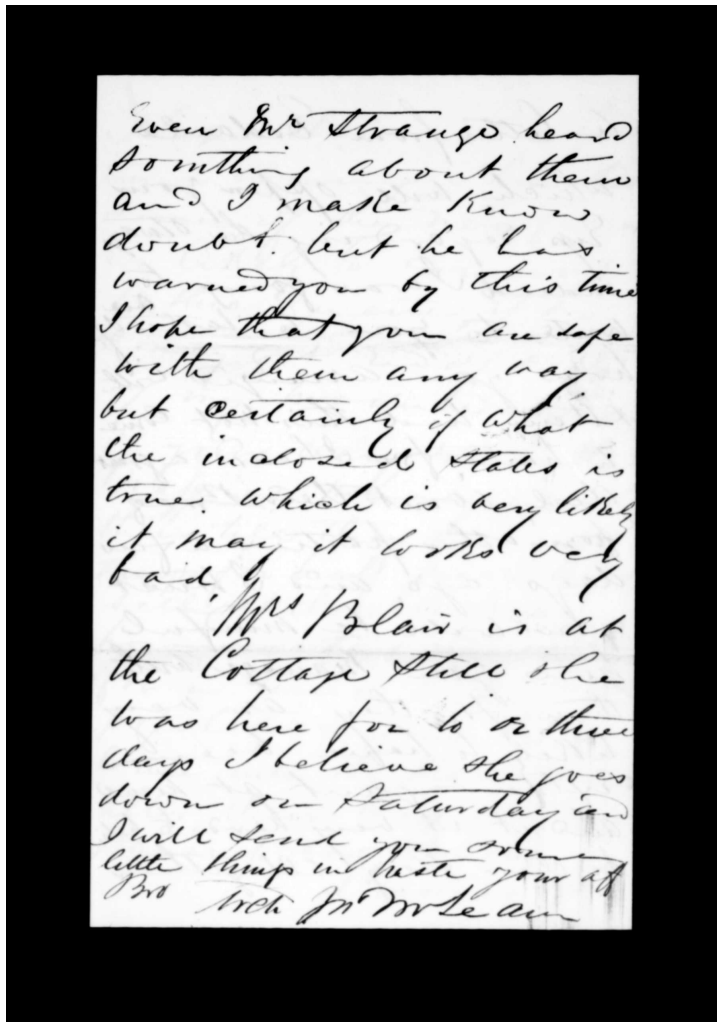 Even Mr Strange heard
somthing about them
and I make know
doubt but he has
warned you by this time
I hope that you are safe
with them any way
but certainly if what
the inclosed states is
true. which is very likely
it may it looks very
bad.
Mrs Blair is at
the Cottage still she
was here for to or three
days I believe she goes
down on Saturday and
I will send you some
little things in haste your aff
Bro Arch Jn McLean